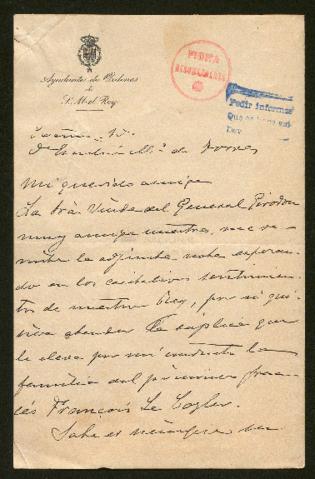 Ayudante de Ordenes
de
S. M. el Rey
PIDIRA
Pedir informes
Mi querido amigo
La Sra. Viuda del General
muy amiga nuestra, me re-
mite la adjunta nota esperan-
do en los caritativos sentimien-
tos de nuestro Rey, por si qui-
siera atender la súplica que
le eleva por mi conducto la
familia del prisionero fran-
cés François Le
Sabe es siempre su